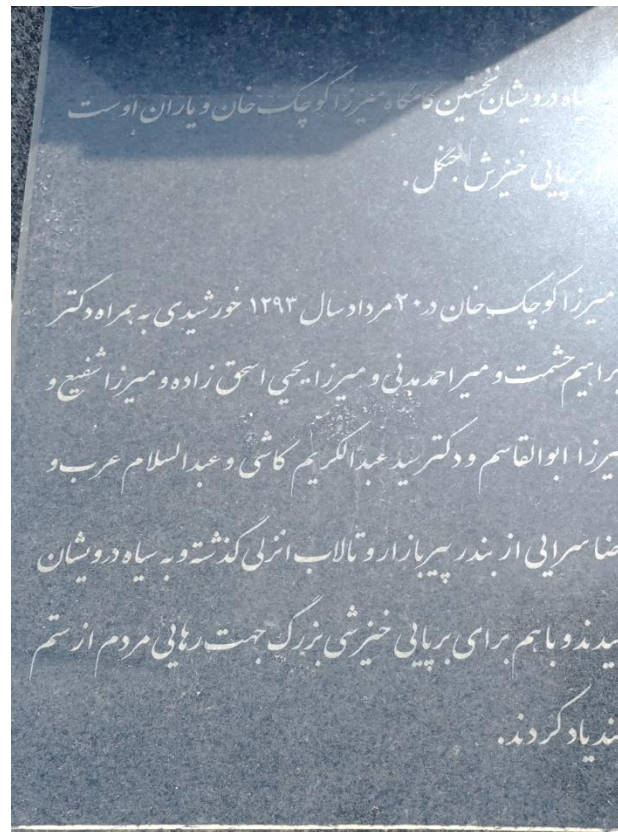 سیاه درویشان نخستین گامگاه میرزا کوچک خان و یاران اوست
برپایی خیزش جنگل.
میرزا کوچک خان در ۲۰ مرداد سال ۱۲۹۳ خورشیدی به همراه دکتر
براهیم حشمت و میر احمد مدنی و میرزا یحیی اسحق زاده و میرزا شفیع و
میرزا ابوالقاسم و دکتر سید عبدالکریم کاشی و عبدالسلام عرب و
حنا سرایی از بندر پیربازار و تالاب انزلی گذشته و به سیاه درویشان
سیدند و با هم برای برپایی خیزشی بزرگ جهت رهایی مردم از ستم
ند یاد کردند.